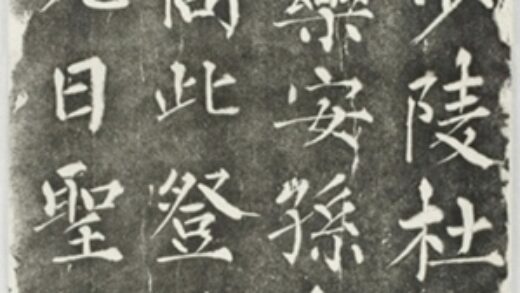 陵杜
樂安孫
此登
日聖